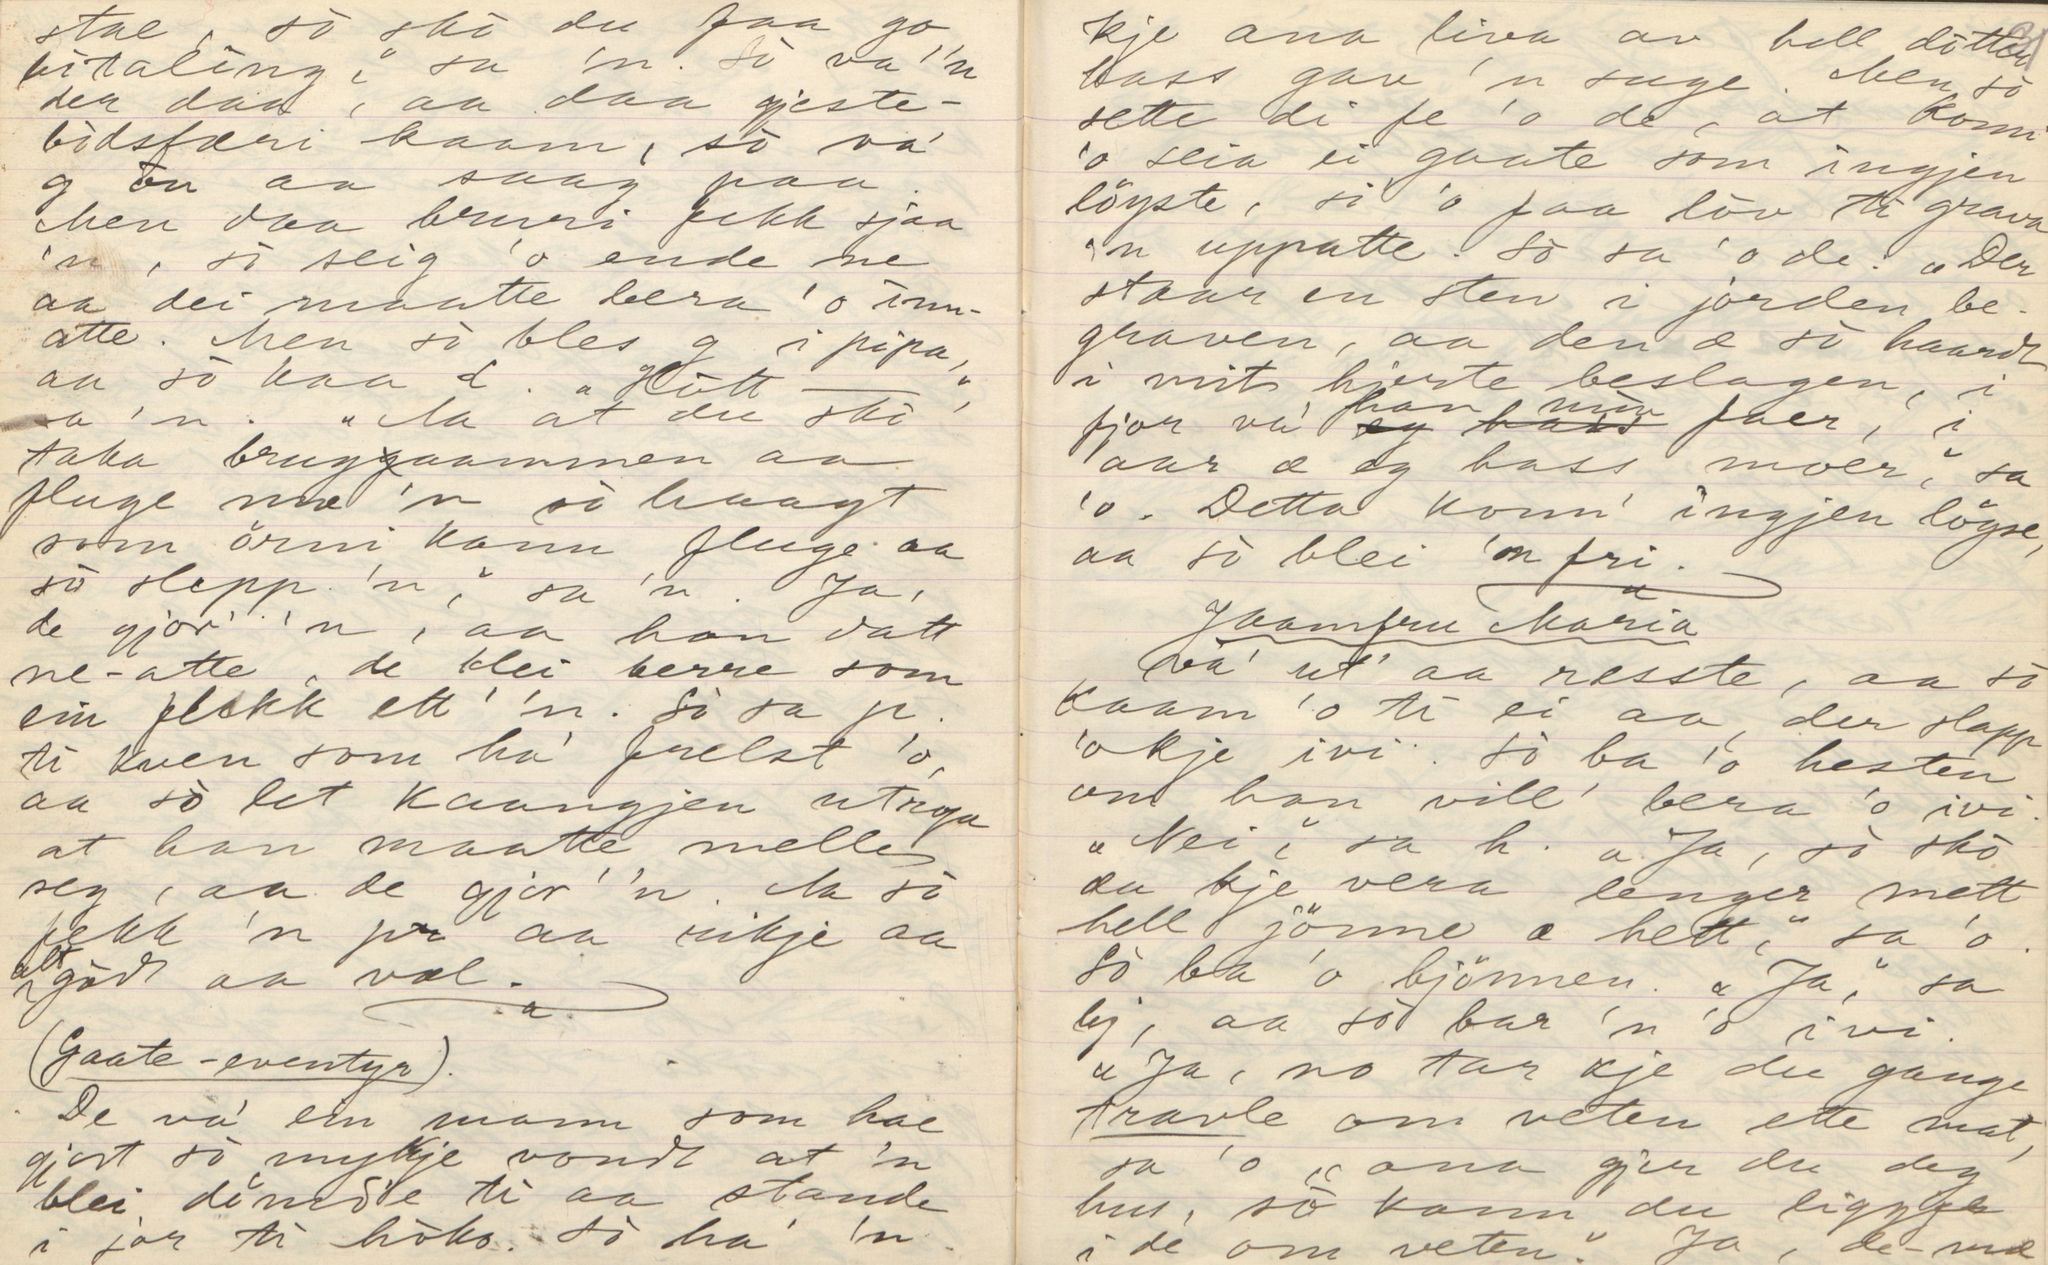 stae, sò skò du faa go
bitaling," sa 'n. Sò va' 'n
der daa, aa daa gjeste-
bòdsfæri kaam, sò va'
g òn aa saag paa.
Men daa bruri fekk sjaa
'n, sò seig 'o ende ne
aa dei maatte bera 'o inn-
atte. Men sò bles g i pipa,
aa sò kaa d. „Hòtt — ",
sa 'n. „Aa at du skò
taka bruggaammen aa
fluge mæ 'n sò haagt
som örni kann fluge aa
sò slepp 'n," sa 'n. Ja,
de gjor' 'n, aa han datt
ne-atte, de blei berre som
ein flekk ett' 'n. Sò sa pr.
ti kven som ha' frelst 'o,
aa sò let kaangjen utropa
at han maatte melle
seg, aa de gjor' 'n. Aa sò
fekk 'n pr aa rikje aa
alt godt aa væl.
(Gaate-eventyr).
De va' ein mann som hae
gjort sò mykje vondt at 'n
blei dömde ti aa stande
i jor ti höko. Sò ha' 'n
kje ana liva av hell dòtter
hass gav 'n suge. Men sò
sette di fe 'o de, at konn'
'o seia ei gaate som ingjen
löyste, si 'o faa lòv ti grava
'n uppatte. Sò sa 'o de: „Der
staar en sten i jorden be-
graven, aa den æ sò haardt
i mit hjerte beslagen, i
fjor va' han min faer, i
aar æ eg hass moer," sa
'o. Detta konn' ingjen löyse,
aa sò blei 'n fri.
Jaamfru Maria
va' ut' aa resste, aa sò
kaam 'o ti ei aa, der slapp
'o kje ivi. Sò ba 'o hesten
om han vill' bera 'o ivi.
„Nei," sa h. „Ja, sò skò
du kje vera lenger mett
hell jönne æ hett," sa 'o.
Sò ba 'o bjönnen. „Ja," sa
bj, aa sò bar 'n 'o ivi.
„Ja, no tar kje du gange
travle om veten ette mat,
sa 'o, „ana gjer du deg
hus, sò kann du liggje
i de om veten." Ja, de-mæ